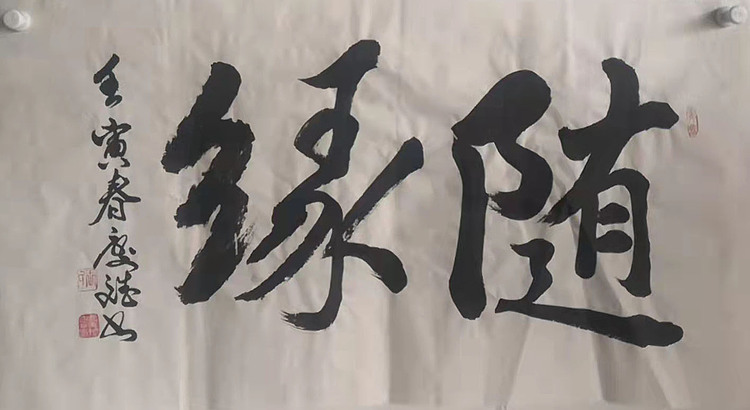 随缘
壬寅春庆